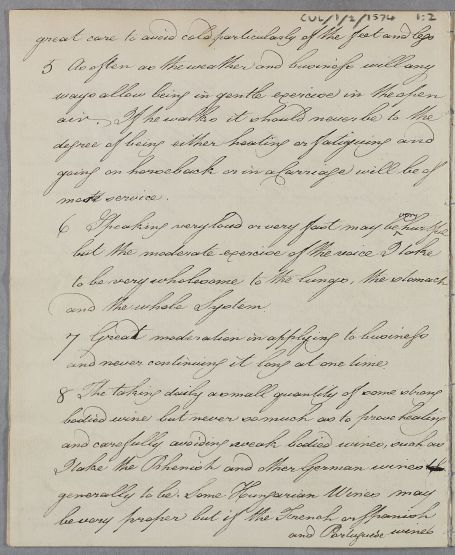 CUL/1/2/1574 1:2
great care to avoid cold particularly of the feet and legs
5 As often as the weather and business will any
ways allow being in gentle exercise in the open
air. If he walks it should never be to the
degree of being either heating or fatiguing and
going on horseback or in a Carriage will be of
most service.
6 Speaking very loud or very fast may be very hurtful
but the moderate exercise of the voice I take
to be very wholesome to the lungs, the stomach
and the whole System
7 Great moderation in applying to business
and never continuing it long at one time.
8 The taking daily a small quantity of some strong
bodied wine but never so much as to prove heating
and carefully avoiding weak bodied wines, such as
I take the Rhenish and other German wines
generally to be. Some Hungarian Wines may
be very proper but if the French or Spanish
and Portuguse wines